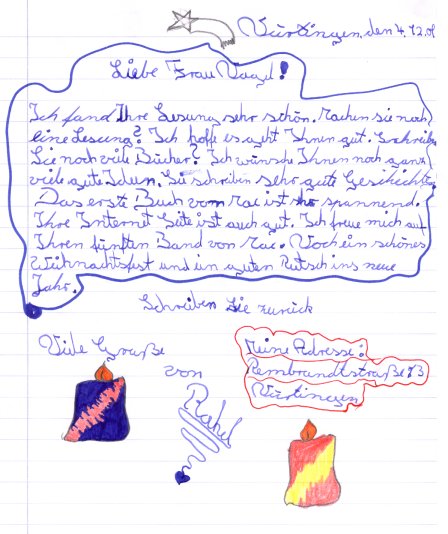 Nürtingen, den 4.12.08
Liebe Frau Vogel!
Ich fand Ihre Lesung sehr schön. Machen sie noch
eine Lesung? Ich hoffe es geht Ihnen gut. Schreiben
Sie noch viele Bücher? Ich wünsche Ihnen noch ganz
viele gute Ideen. Sie schreiben sehr gute Geschichten
Das erste Buch vom Mac ist sehr spannend.
Ihre Internet Seite ist auch gut. Ich freue mich auf
Ihren fünften Band von Mac. Noch ein schönes
Weihnachtsfest und ein guten Rutsch ins neue
Jahr.
Schreiben Sie zurück
Viele Grüße
von
Rahel
Meine Adresse:
Rembrandtstraße 73
Nürtingen